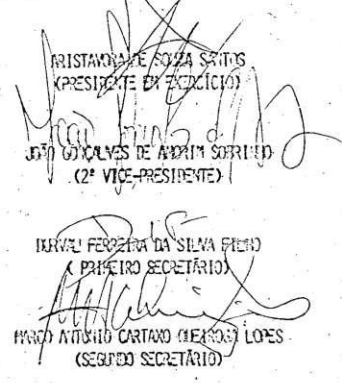 ARISTAVORA DE SOUZA SANTOS
(PRESIDENTE EM EXERCÍCIO)
JOÃO GONÇALVES DE AMORIM SOBRINHO
(2º VICE-PRESIDENTE)
DURVAL FERREIRA DA SILVA FILHO
( PRIMEIRO SECRETÁRIO)
MARCO ANTONIO CARTAXO QUEIROGA LOPES
(SEGUNDO SECRETÁRIO)